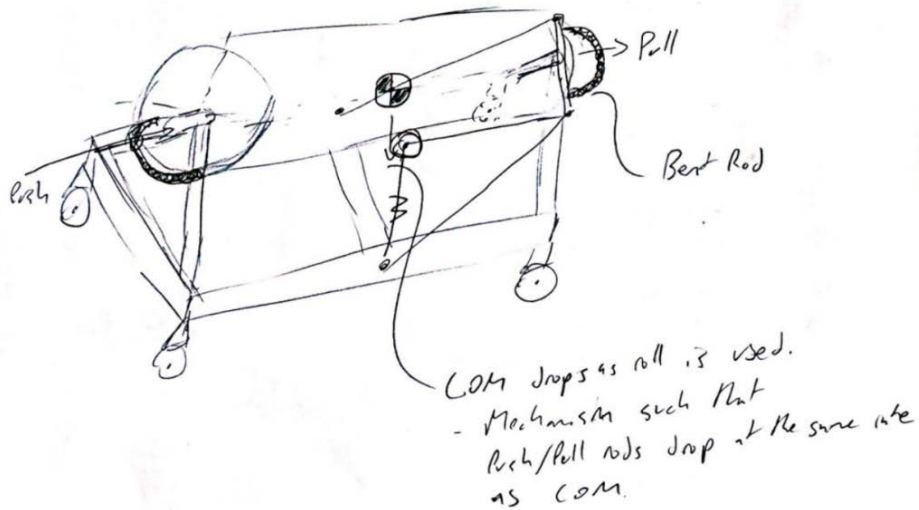 Pull
Push
Bent Rod
COM drops as roll is used.
- Mechanism such that
Push/Pull rods drop at the same rate
as COM.